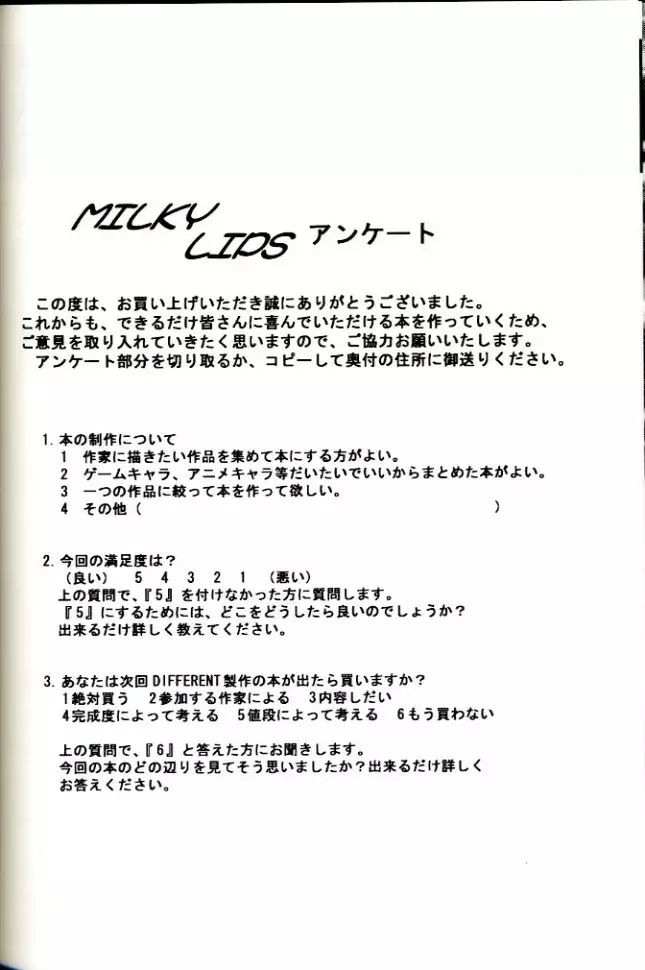 MILKY
LIPS アンケート
この度は、お買い上げいただき誠にありがとうございました。
これからも、できるだけ皆さんに喜んでいただける本を作っていくため、
ご意見を取り入れていきたく思いますので、ご協力お願いいたします。
アンケート部分を切り取るか、コピーして奥付の住所に御送りください。
1. 本の制作について
1 作家に描きたい作品を集めて本にする方がよい。
2 ゲームキャラ、アニメキャラ等だいたいでいいからまとめた本がよい。
3 一つの作品に絞って本を作って欲しい。
4 その他 ( )
2. 今回の満足度は？
（良い） 5 4 3 2 1 （悪い）
上の質問で、『5』を付けなかった方に質問します。
『5』にするためには、どこをどうしたら良いのでしょうか？
出来るだけ詳しく教えてください。
3. あなたは次回DIFFERENT製作の本が出たら買いますか？
1絶対買う 2参加する作家による 3内容しだい
4完成度によって考える 5値段によって考える 6もう買わない
上の質問で、『6』と答えた方にお聞きします。
今回の本のどの辺りを見てそう思いましたか？出来るだけ詳しく
お答えください。